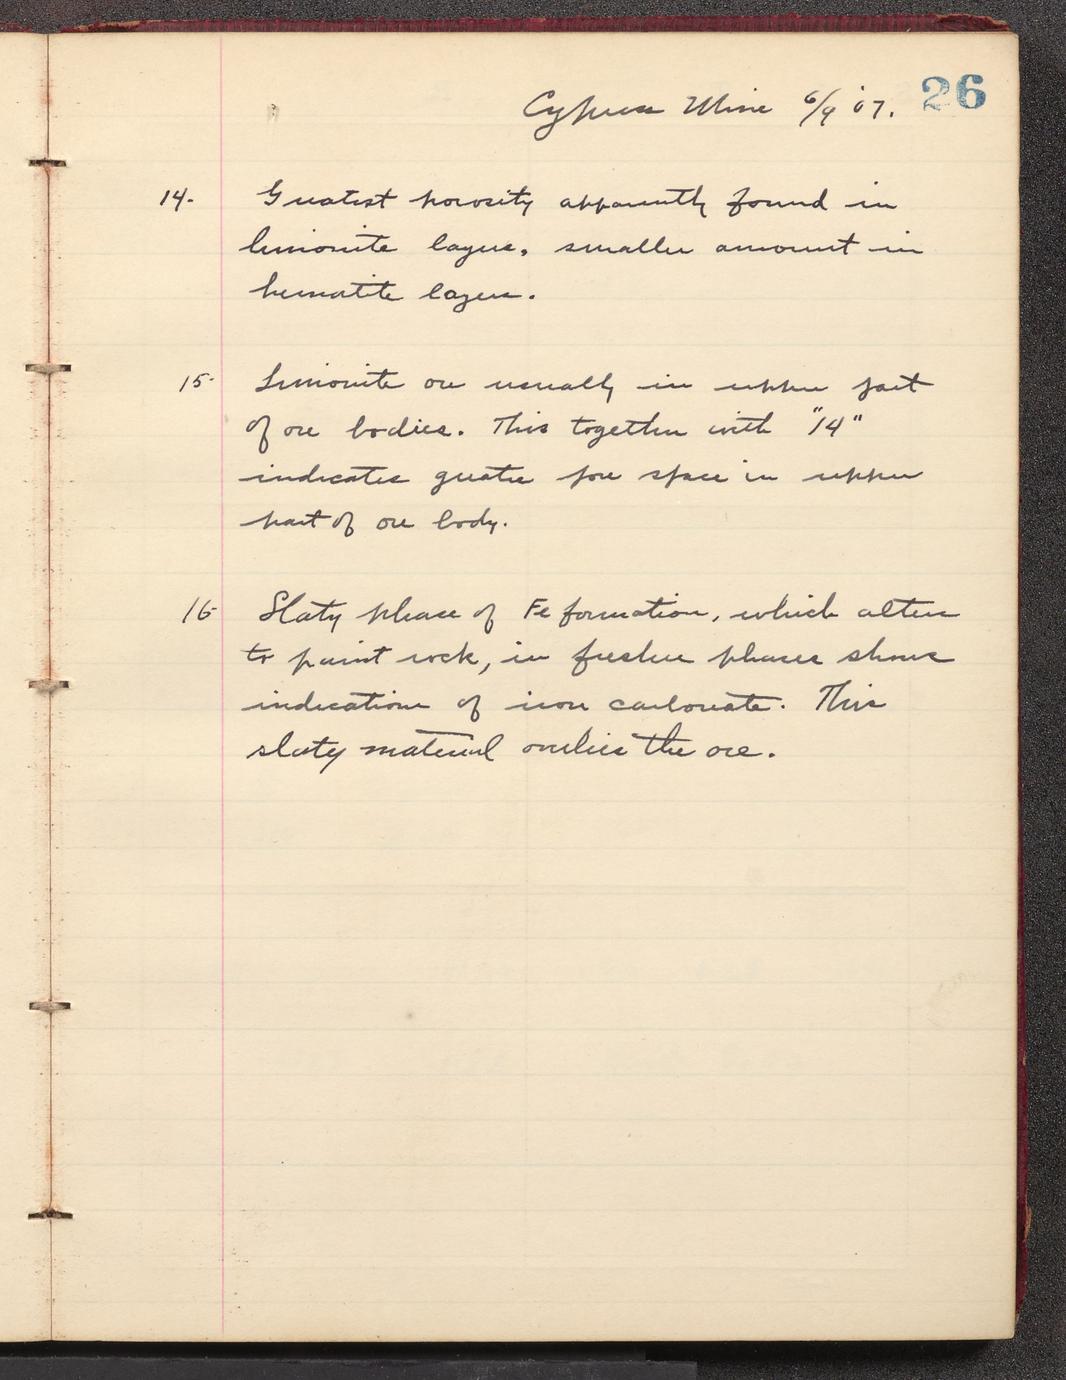 26
Cyprus Mine 6/9 '07.
14. Greatest porosity apparently found in
limonite layers, smaller amount in
hematite layers.
15. Limonite ore usually in upper part
of ore bodies. This together with "14"
indicates greater pore space in upper
part of ore body.
16 Slaty phase of Fe formation, which alters
to paint rock, in fresher phases shows
indications of iron carbonate. This
slaty material overlies the ore.